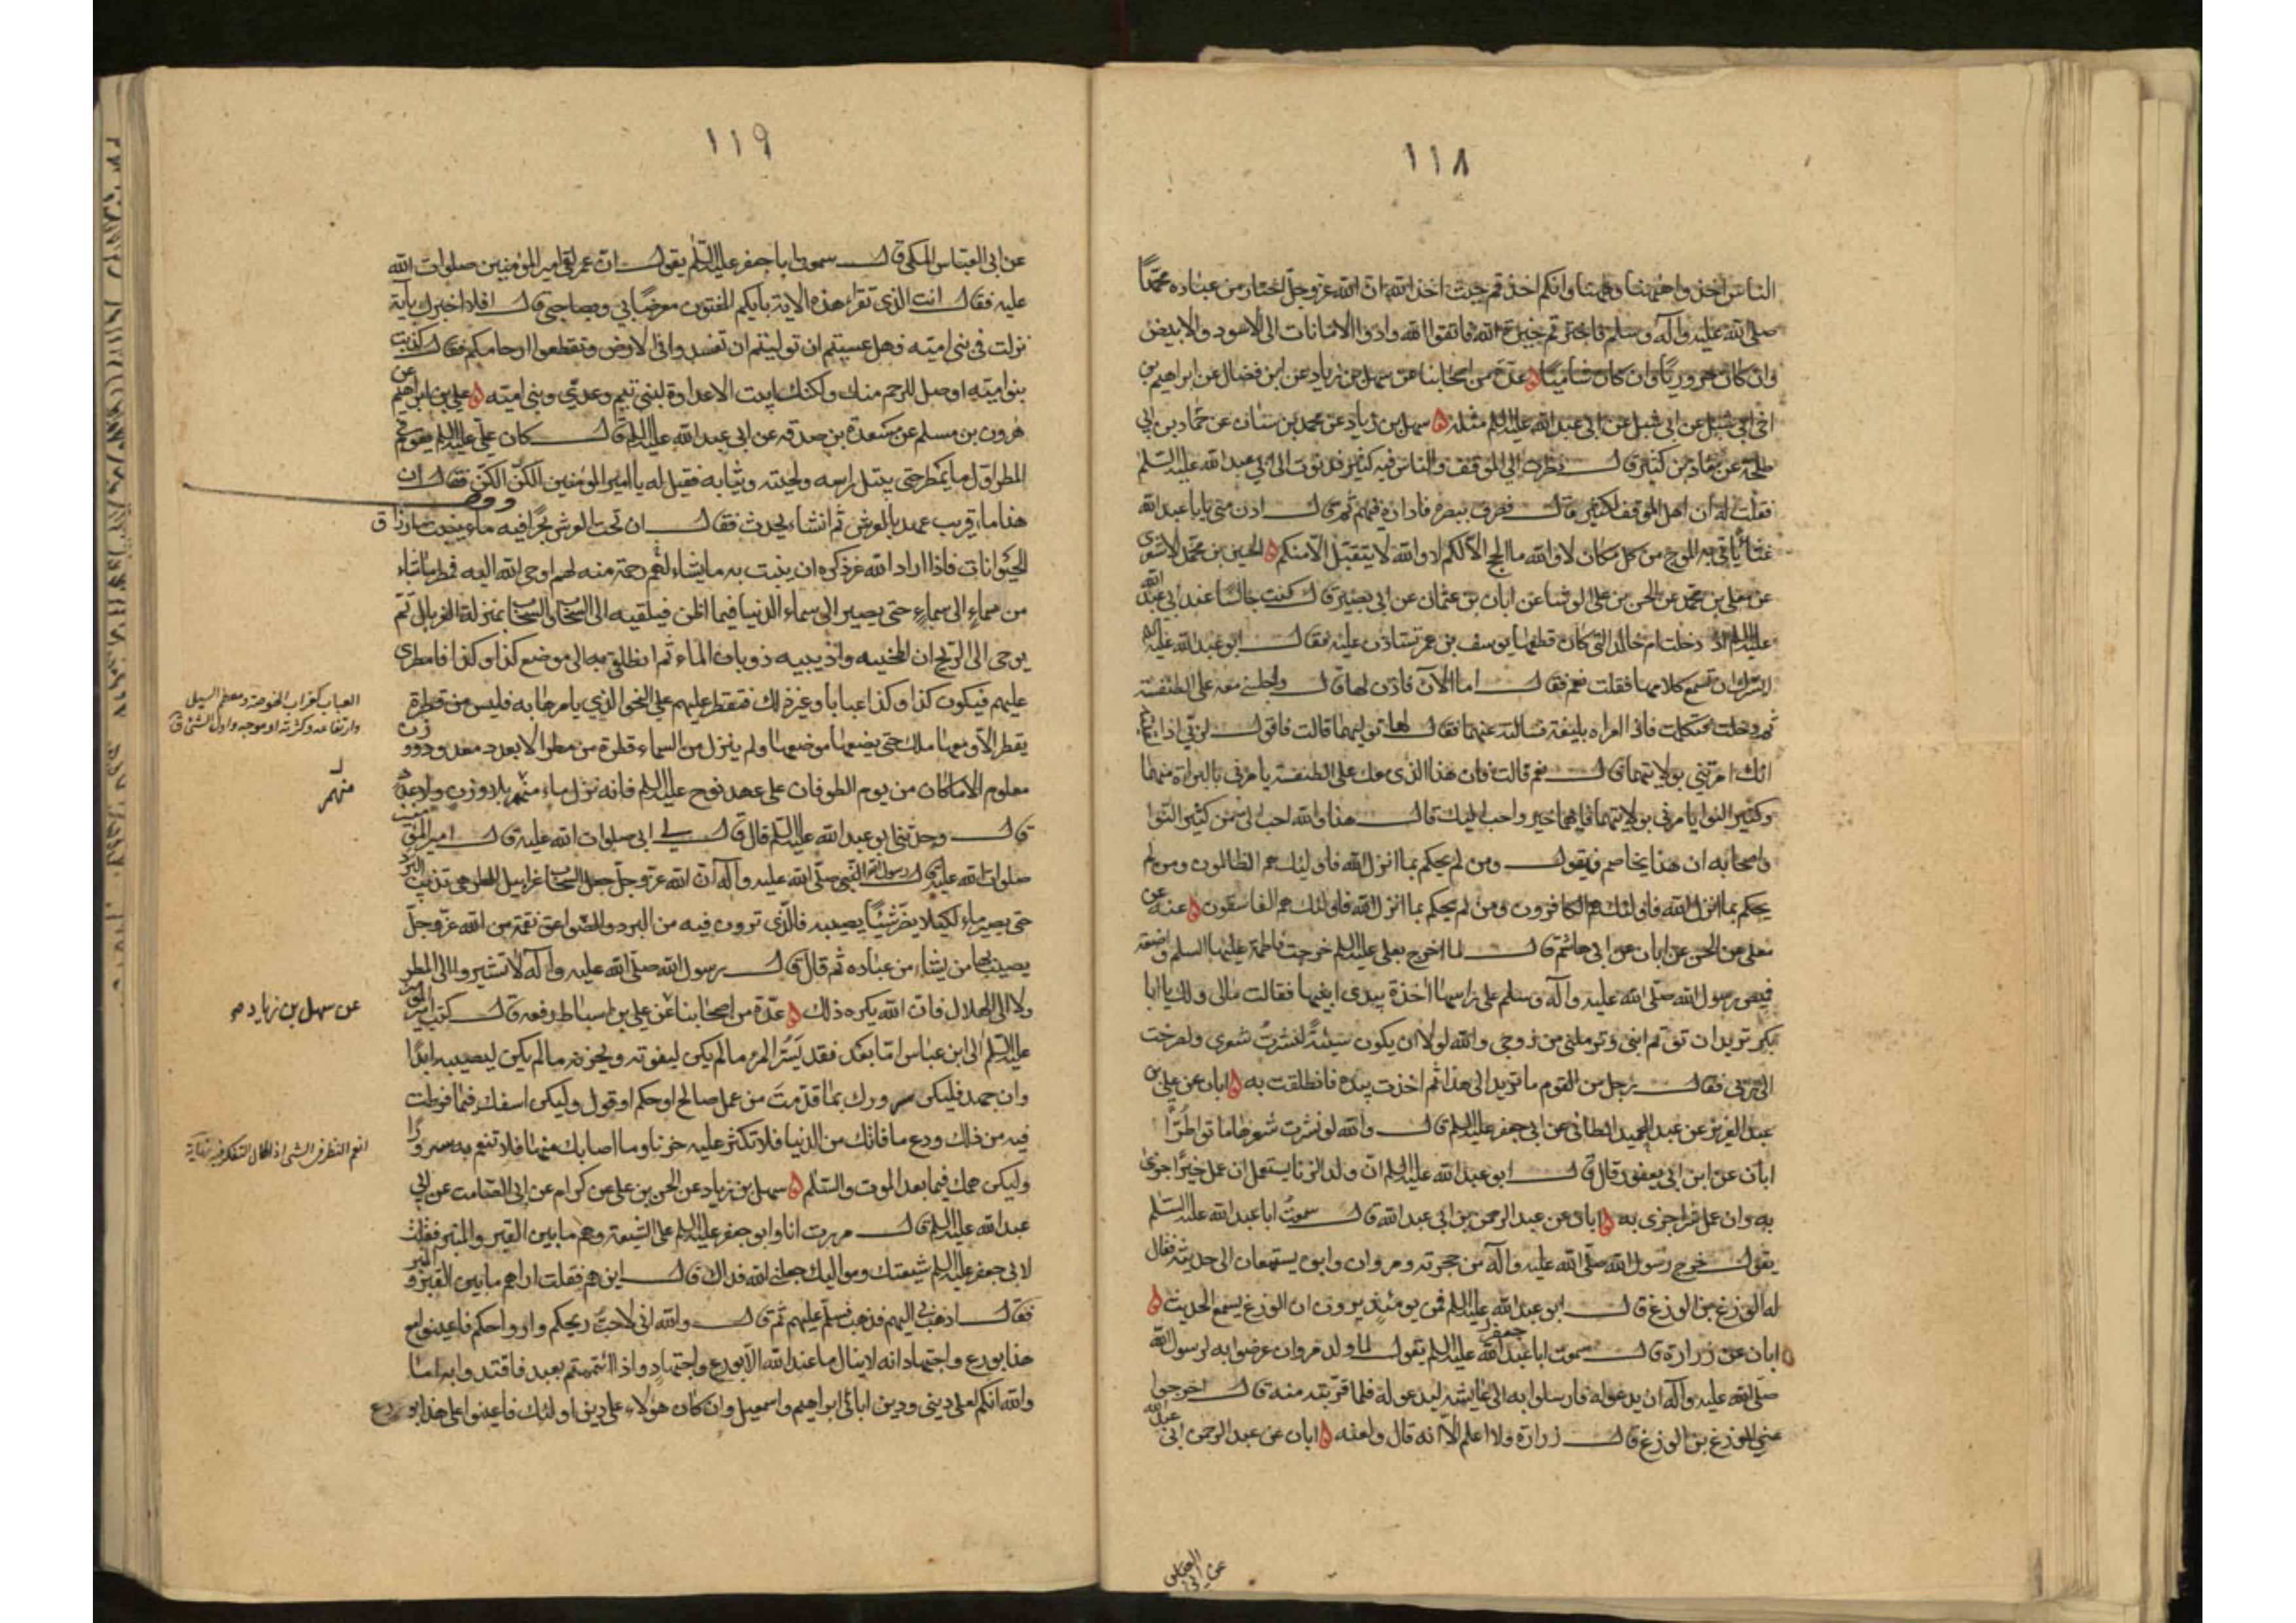 ١١٨
الناس اخذوا هيهنا وهيهنا وانكم اخذتم حيث اخذ الله ان الله عزوجل اختار من عباده محمدا
صلى الله عليه وآله وسلم فاخترتم خيرة الله فاتقوا الله وادوا الامانات الى الاسود والابيض
وان كان حروريا وان كان شاميا ه عدة من اصحابنا عن سهل بن زياد عن ابن فضال عن ابراهيم بن
اخى ابى شبل عن ابى شبل عن ابى عبد الله عليه السلم مثله ه سهل بن زياد عن محمد بن سنان عن حماد بن ابى
طلحة عن معاذ بن كثير قال نظرت الى الموقف والناس فيه كثير فدنوت الى ابى عبد الله عليه السلم
فقلت له ان اهل الموقف لكثير قال فصرف ببصره فاداره فيهم ثم قال ادن منى يا با عبد الله
غثاء ياتى به الموج من كل مكان لا والله ما الحج الا لكم لا والله لا يتقبل الا منكم ه الحسين بن محمد الاشعرى
عن معلى بن محمد عن الحسن بن على الوشا عن ابان بن عثمان عن ابى بصير قال كنت جالسا عند ابى عبد الله
عليه السلم اذ دخلت ام خالد التى كان قطعها يوسف بن عمر تستاذن عليه فقال ابو عبد الله عليه السلم
ايسرك ان تسمع كلامها فقلت نعم فقال اما الآن فاذن لها قال واجلسنى معه على الطنفسة
ثم دخلت فتكلمت فاذا امراة بليغة فسالته عنهما فقال لها توليهما قالت فاقول لربى اذا لقيته
انك امرتنى بولايتهما قال نعم قالت فان هذا الذى معك على الطنفسة يامرنى بالبراءة منهما
وكثير النوا يامرنى بولايتهما فايهما خير واحب اليك قال هذا والله احب الى من كثير النوا
واصحابه ان هذا يخاصم فيقول ومن لم يحكم بما انزل الله فاولئك هم الظالمون ومن لم
يحكم بما انزل الله فاولئك هم الكافرون ومن لم يحكم بما انزل الله فاولئك هم الفاسقون ه عنه عن
معلى عن الحسن عن ابان عن ابى هاشم قال لما اخرج بعلى عليه السلم خرجت فاطمة عليها السلم واضعة
قميص رسول الله صلى الله عليه وآله وسلم على راسها آخذة بيدى ابنيها فقالت مالى ولك يا ابا
بكر تريد ان توتم ابنى وترملنى من زوجى والله لولا ان يكون سيئة لنشرت شعرى ولصرخت
الى ربى فقال رجل من القوم ما تريد الى هذا ثم اخذت بيده فانطلقت به ه ابان عن على بن
عبد العزيز عن عبد الحميد الطائى عن ابى جعفر عليه السلم قال والله لو نشرت شعرها ماتوا طرا
ابان عن ابن ابى يعفور قال قال ابو عبد الله عليه السلم ان ولد الزنا يستعمل ان عمل خيرا جزى
به وان عمل شرا جزى به ه ابان عن عبد الرحمن بن ابى عبد الله قال سمعت ابا عبد الله عليه السلم
يقول خرج رسول الله صلى الله عليه وآله من حجرته ومروان وابوه يستمعان الى حديثه فقال
له الوزغ بن الوزغ قال ابو عبد الله عليه السلم فمن يومئذ يرون ان الوزغ يسمع الحديث ه
ه ابان عن زرارة قال سمعت ابا عبد الله جعفر عليه السلم يقول لما ولد مروان عرضوا به لرسول الله
صلى الله عليه وآله ان يدعو له فارسلوا به الى عايشة ليدعو له فلما قربته منه قال اخرجوا
عنى الوزغ بن الوزغ قال زرارة ولا اعلم الا انه قال ولعنه ه ابان عن عبد الرحمن ابى عبد الله
عن ابى العباس
١١٩
عن ابى العباس المكى قال سمعت ابا جعفر عليه السلم يقول ان عمر لقى امير المؤمنين صلوات الله
عليه فقال انت الذى تقراء هذه الاية بايكم المفتون معرضا بى وبصاحبى قال افلا اخبرك بآية
نزلت فى بنى امية فهل عسيتم ان توليتم ان تفسدوا فى الارض وتقطعوا ارحامكم فقال كذبت
بنو امية اوصل للرحم منك ولكنك ابيت الا عداوة لبنى تيم وعدى وبنى امية ه على بن ابراهيم عن
هرون بن مسلم عن مسعدة بن صدقه عن ابى عبد الله عليه السلم قال كان على عليه السلم يقوم فى
المطر اول ما يمطر حتى يبتل راسه ولحيته وثيابه فقيل له يا امير المؤمنين الكن الكن فقال ان
هذا ماء قريب عهد بالعرش ثم انشاء يحدث فقال ان تحت العرش بحرا فيه ماء ينبت ارزاق
الحيوانات فاذا اراد الله عز ذكره ان ينبت به ما يشاء لهم رحمة منه لهم اوحى الله اليه فمطر ما شاء
من سماء الى سماء حتى يصير الى سماء الدنيا فيما اظن فيلقيه الى السحاب والسحاب بمنزلة الغربال ثم
يوحى الى الريح ان اطحنيه واذيبيه ذوبان الماء ثم انطلقى به الى موضع كذا وكذا فامطرى
عليهم فيكون كذا وكذا عبابا وغير ذلك فتقطر عليهم على النحو الذي يامرها به فليس من قطرة
يقطر الا ومعها ملك حتى يضعها موضعها ولم ينزل من السماء قطرة من مطر الا بعدد معدود ووزن
معلوم الا ما كان من يوم الطوفان على عهد نوح عليه السلم فانه نزل ماء منهمر بلا وزن ولا عدد
قال وحدثنى ابو عبد الله عليه السلم قال قال لى ابى صلوات الله عليه قال امير المؤمنين
صلوات الله عليه قال رسول الله النبى صلى الله عليه وآله ان الله عزوجل جعل السحاب غرابيل للمطر هى تذيب البرد
حتى يصير ماء لكيلا يضر شيئا يصيبه فالذى ترون فيه من البرد والصواعق نقمة من الله عزوجل
يصيب بها من يشاء من عباده ثم قال قال رسول الله صلى الله عليه وآله لا تشيروا الى المطر
ولا الى الهلال فان الله يكره ذلك ه عدة من اصحابنا عن على بن اسباط رفعه قال كتب امير المؤمنين
عليه السلم الى ابن عباس اما بعد فقد يسر المرء ما لم يكن ليفوته ويحزنه ما لم يكن ليصيبه ابدا
وان جهد فليكن سرورك بما قدمت من عمل صالح او حكم او قول وليكن اسفك فيما فرطت
فيه من ذلك ودع ما فاتك من الدنيا فلا تكثر عليه حزنا وما اصابك منها فلا تنعم به سرورا
وليكن همك فيما بعد الموت والسلم ه سهل بن زياد عن الحسن بن على عن كرام عن ابى الصامت عن ابى
عبد الله عليه السلم قال مررت انا وابو جعفر عليه السلم على الشيعة وهم ما بين القبر والمنبر فقلت
لابى جعفر عليه السلم شيعتك ومواليك جعلنى الله فداك قال اين هم فقلت اراهم ما بين القبر والمنبر
فقال اذهب بى اليهم فذهب فسلم عليهم ثم قال والله انى لاحب ريحكم وارواحكم فاعينوا مع
هذا بورع واجتهاد انه لا ينال ما عند الله الا بورع واجتهاد واذا ائتممتم بعبد فاقتدوا به اما
والله انكم لعلى دينى ودين ابائى ابراهيم واسمعيل وان كان هؤلاء على دين اولئك فاعينوا على هذا بورع
العباب كغراب الخوصة ومعظم السيل
وارتفاعه وكثرته او موجه واول الشئ ق
منهمر
عن سهل بن زياد صح
انعم النظر فى الشئ اذا اطال التفكر فيه نهاية